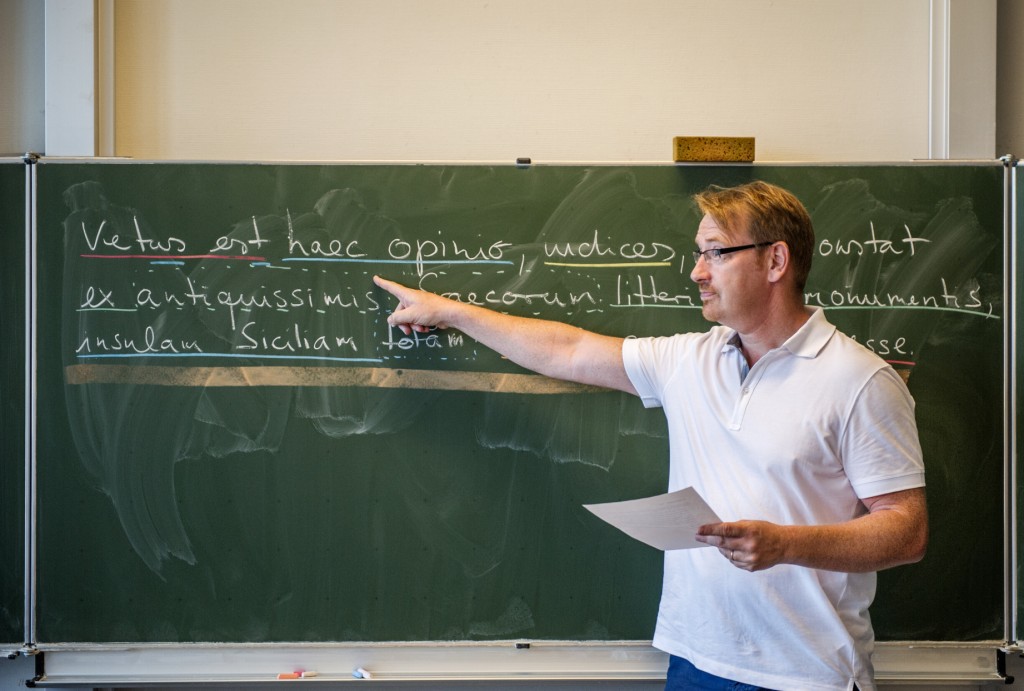 Vetus est haec opinio, iudices, onstat
ex antiquissimis Graecorum litteri monumentis,
insulam Siciliam totam sse.